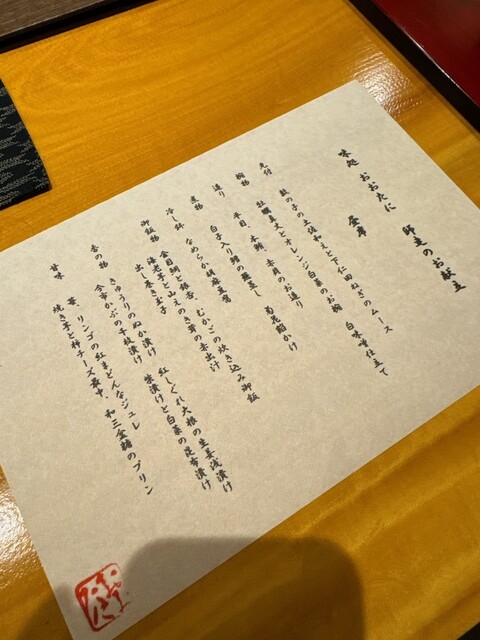 味処 おおたに 師走のお献立
先付 数の子の土佐和えと下仁田ねぎのムース
椀物 牡蠣真丈とオレンジ白菜のお椀 白味噌仕立て
造り 平目、本鮪、赤貝のお造り
煮物 白子入り鱈の蕪蒸し 菊花餡かけ
冷し鉢 なめらか胡麻豆腐
御飯物 金目鯛と銀杏、むかごの炊き込み御飯
海老芋と山えのき茸の赤出汁
出し巻き玉子
香の物 きゅうりのぬか漬け 紅しぐれ大根の生姜浅漬け
今市かぶの千枚漬け 柴漬けと白菜の昆布漬け
甘味 苺、リンゴの紅まどんなジュレ
焼き芋と柿チーズ最中、和三盆糖のプリン